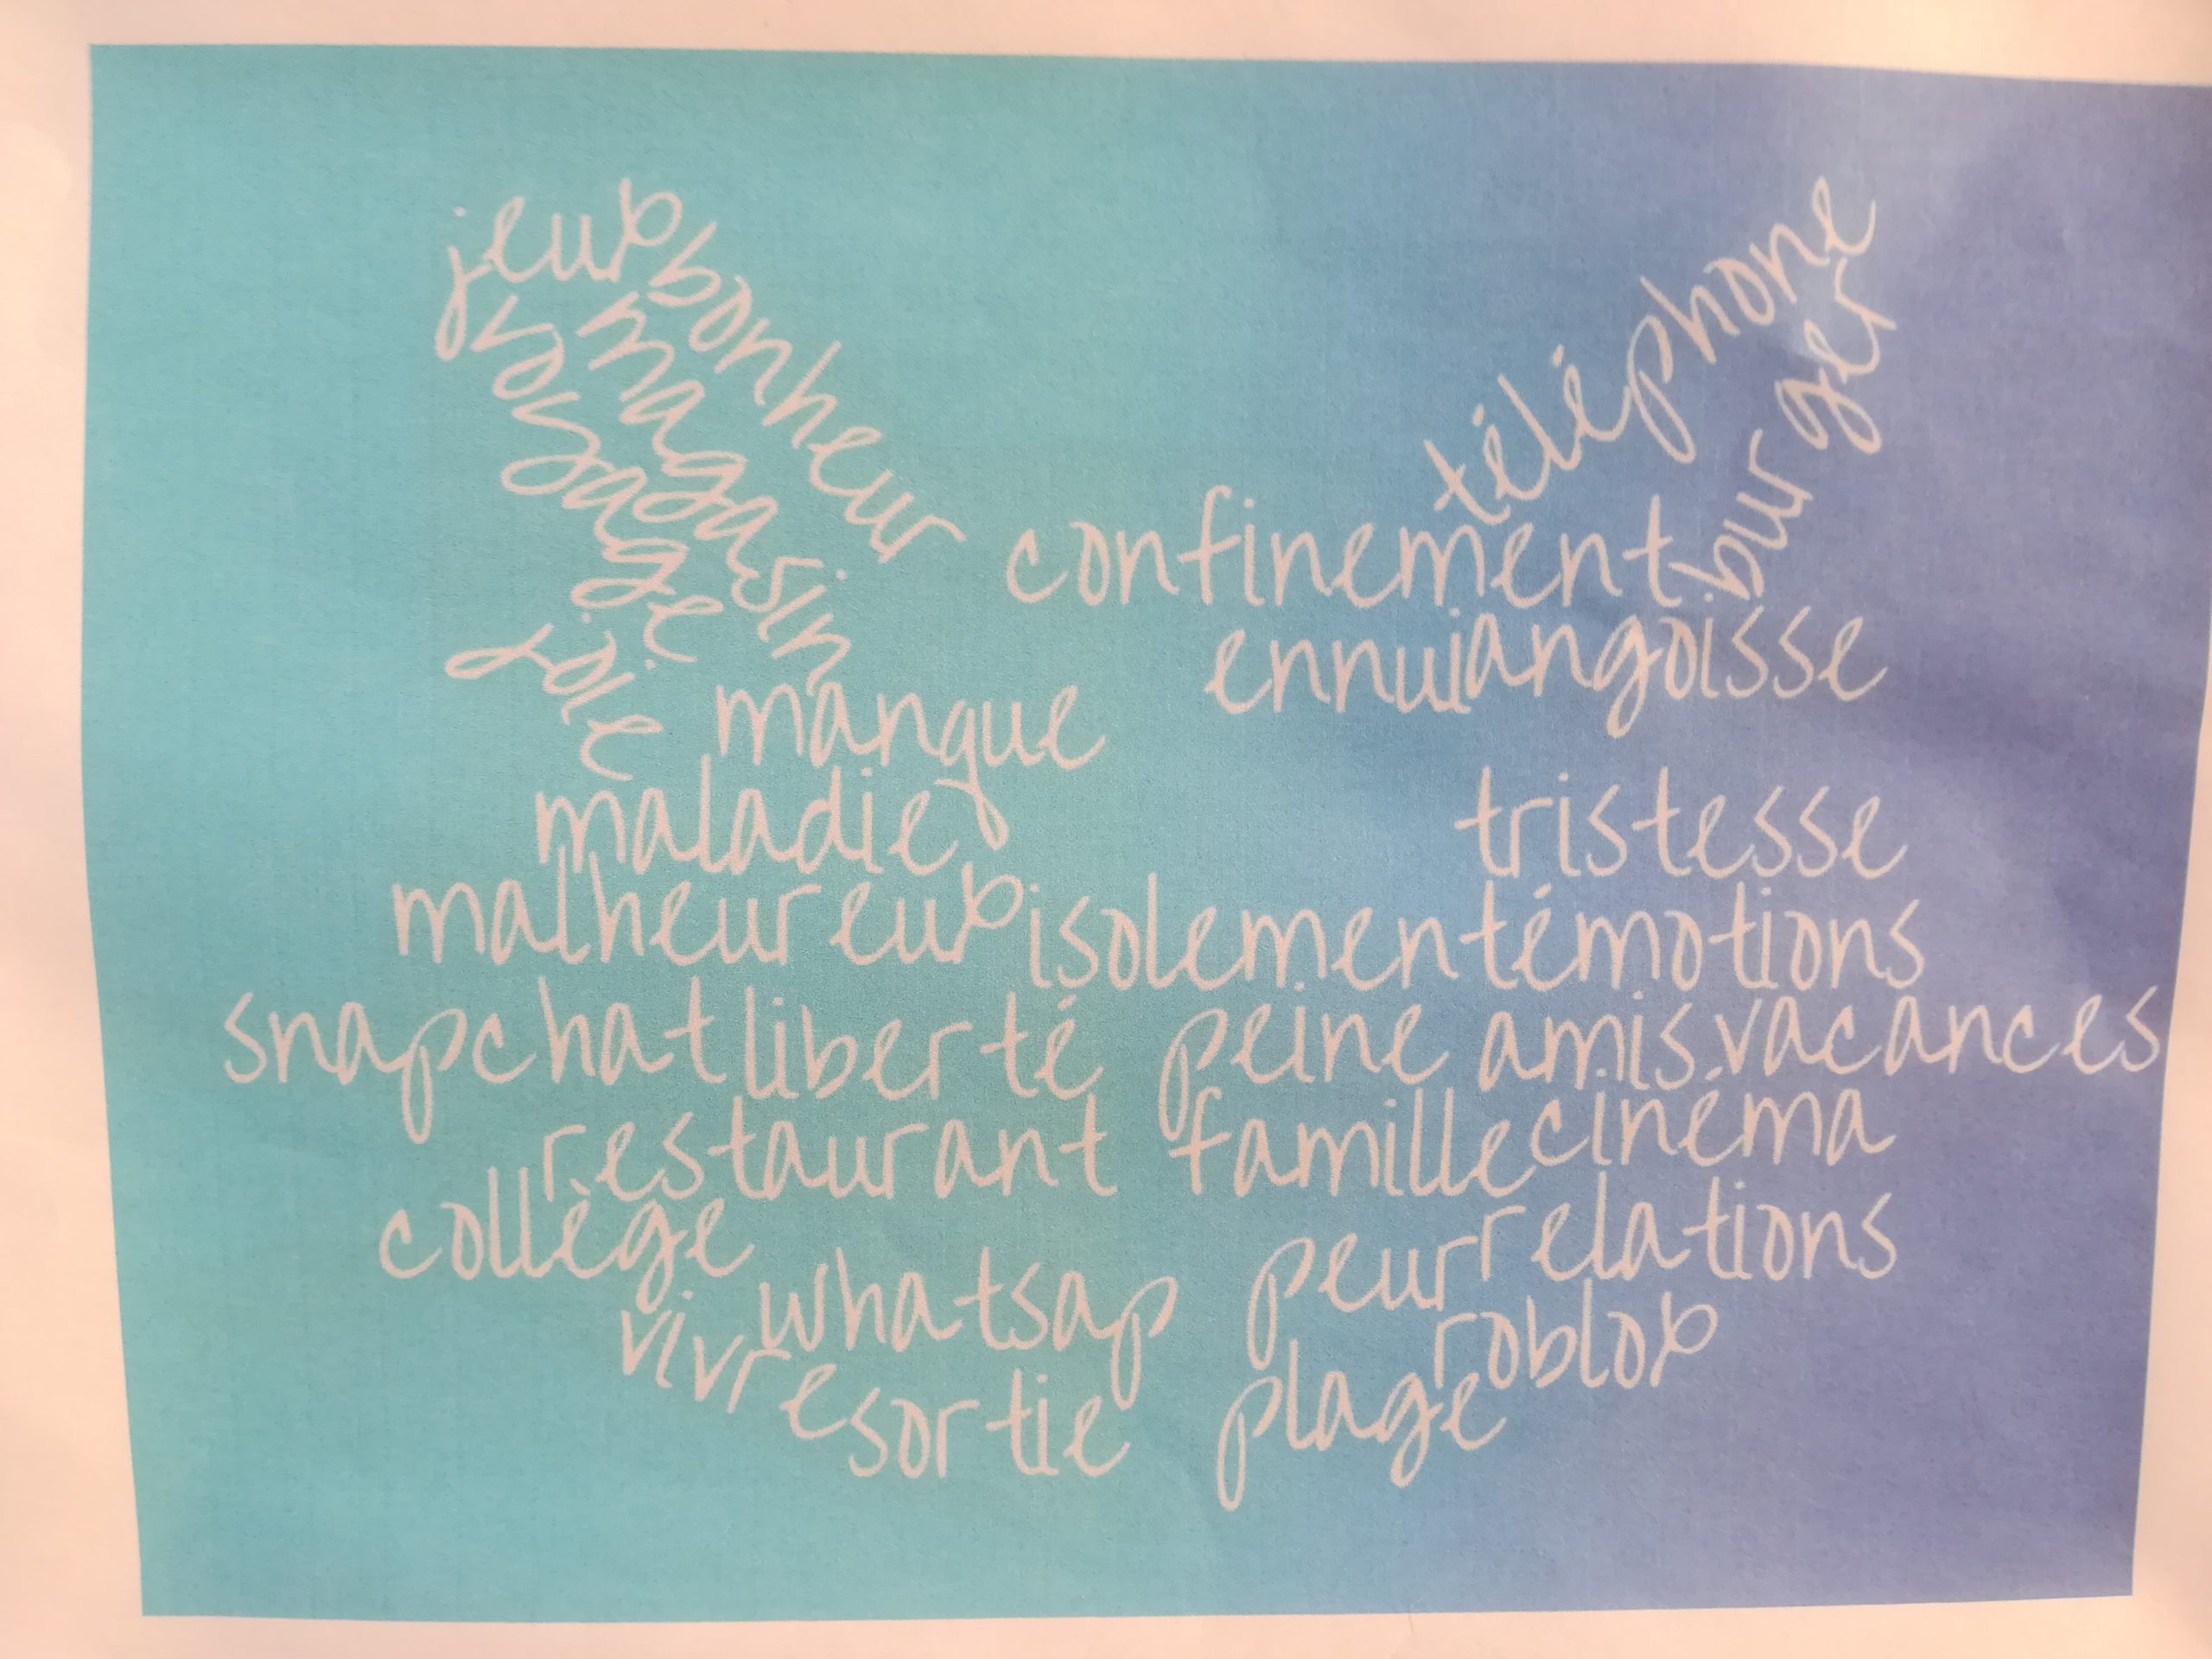 jeux
bonheur
magasin
voyage
joie
téléphone
burger
confinement
ennui angoisse
manque
maladie tristesse
malheureux isolement émotions
snapchat liberté peine amis vacances
restaurant famille cinéma
collège
whatsap peur relations
vivre roblox
sortie plage